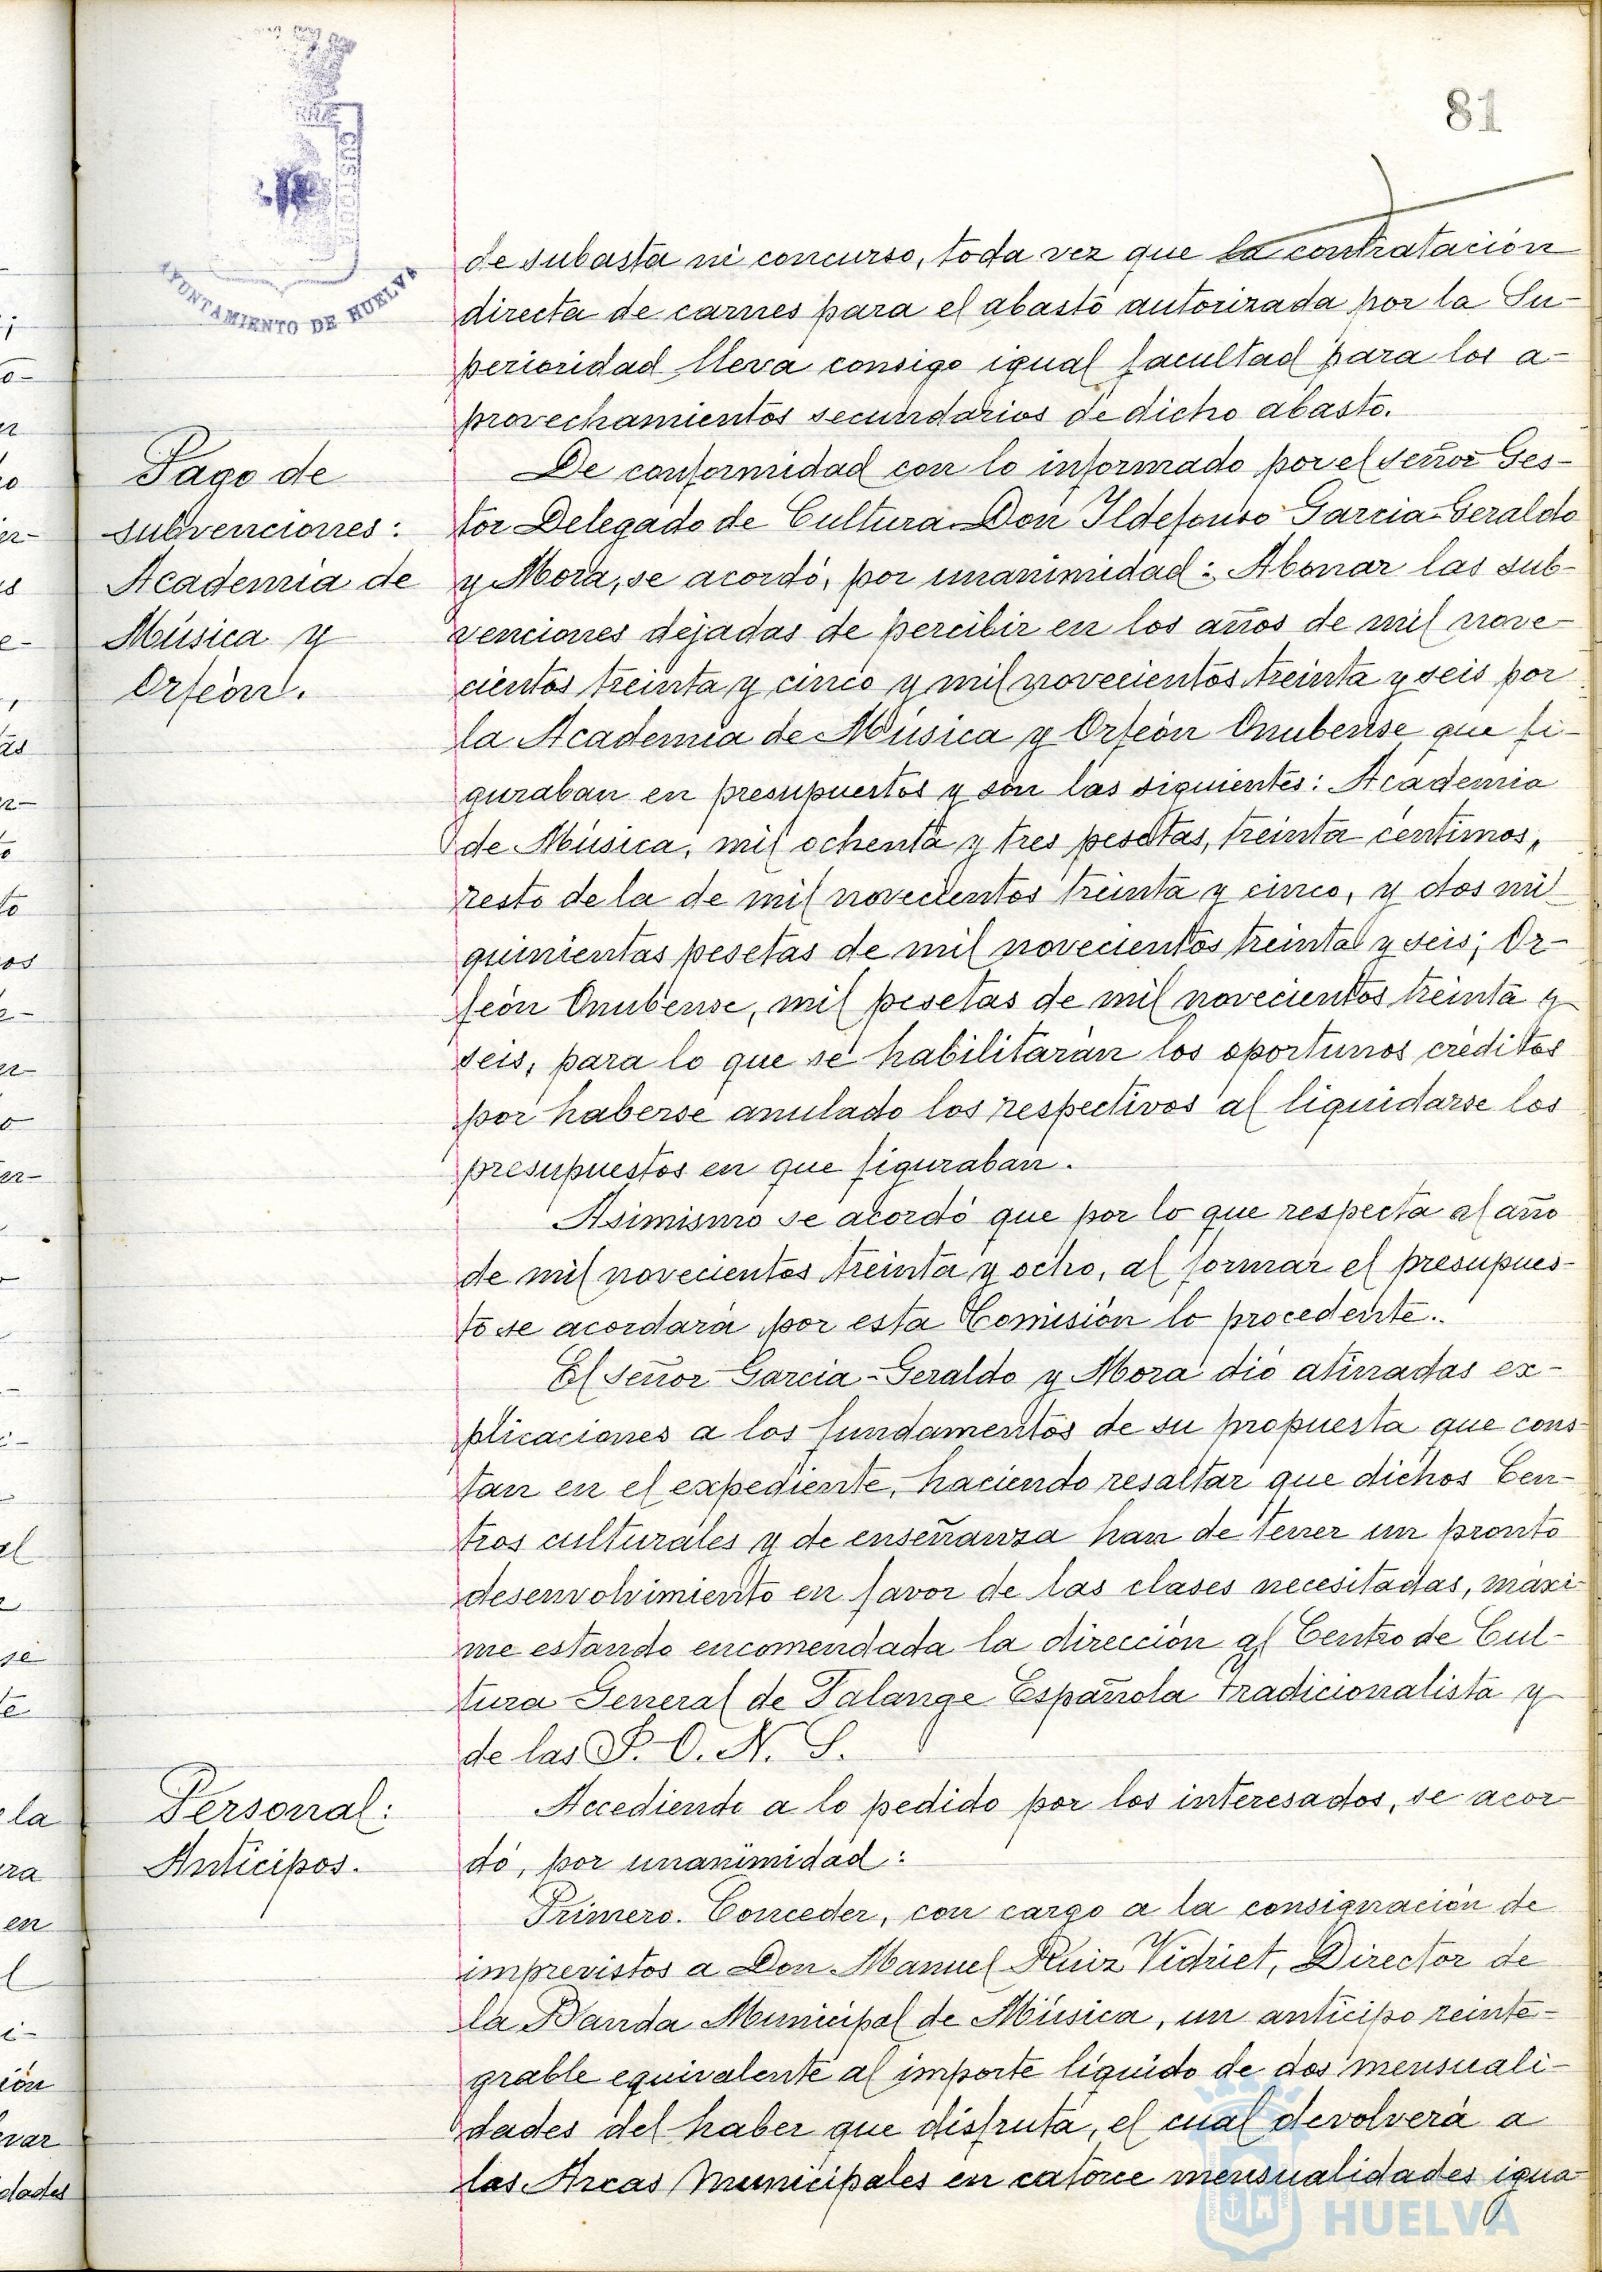 81
CUSTODIA
AYUNTAMIENTO DE HUELVA
de subasta ni concurso, toda vez que la contratación
directa de carnes para el abasto autorizada por la Su-
perioridad lleva consigo igual facultad para los a-
provechamientos secundarios de dicho abasto.
Pago de
subvenciones:
Academia de
Música y
Orfeón.
De conformidad con lo informado por el señor Ges-
tor Delegado de Cultura Don Ildefonso Garcia-Geraldo
y Mora, se acordó, por unanimidad: Abonar las sub-
venciones dejadas de percibir en los años de mil nove-
cientos treinta y cinco y mil novecientos treinta y seis por
la Academia de Música y Orfeón Onubense que fi-
guraban en presupuestos y son las siguientes: Academia
de Música, mil ochenta y tres pesetas, treinta céntimos,
resto de la de mil novecientos treinta y cinco, y dos mil
quinientas pesetas de mil novecientos treinta y seis; Or-
feón Onubense, mil pesetas de mil novecientos treinta y
seis, para lo que se habilitarán los oportunos créditos
por haberse anulado los respectivos al liquidarse los
presupuestos en que figuraban.
Asimismo se acordó que por lo que respecta al año
de mil novecientos treinta y ocho, al formar el presupues-
to se acordará por esta Comisión lo procedente.
El señor Garcia-Geraldo y Mora dió atinadas ex-
plicaciones a los fundamentos de su propuesta que cons-
tan en el expediente, haciendo resaltar que dichos Cen-
tros culturales y de enseñanza han de tener un pronto
desenvolvimiento en favor de las clases necesitadas, máxi-
me estando encomendada la dirección al Centro de Cul-
tura General de Falange Española tradicionalista y
de las J. O. N. S.
Personal:
Anticipos.
Accediendo a lo pedido por los interesados, se acor-
dó, por unanimidad:
Primero. Conceder, con cargo a la consignación de
imprevistos a Don Manuel Ruiz Vidriet, Director de
la Banda Municipal de Música, un anticipo reinte-
grable equivalente al importe líquido de dos mensuali-
dades del haber que disfruta, el cual devolverá a
las Arcas Municipales en catorce mensualidades igua-
HUELVA